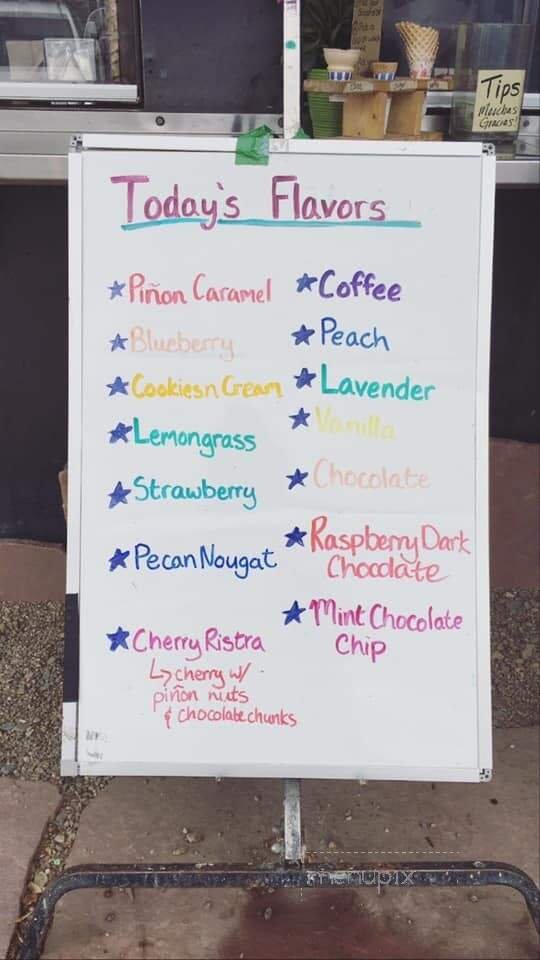 Tips
Muchas
Gracias!
Today's Flavors
Piñon Caramel
Blueberry
Cookies n Cream
Lemongrass
Strawberry
Pecan Nougat
Cherry Ristra
↳ cherry w/
piñon nuts
& chocolate chunks
Coffee
Peach
Lavender
Vanilla
Chocolate
Raspberry Dark
Chocolate
Mint Chocolate
Chip
menupix